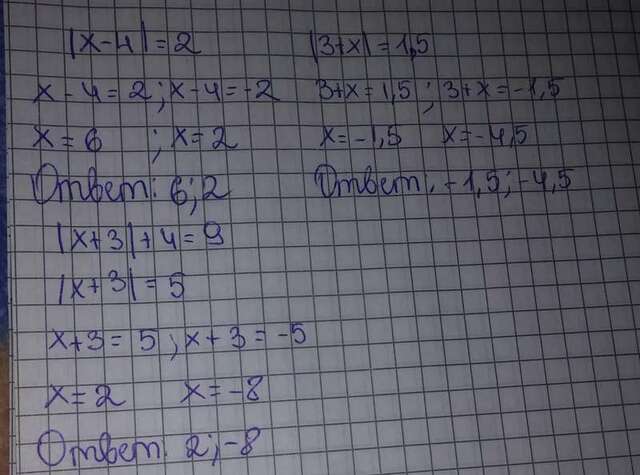 |x-4|=2
x-4=2; x-4=-2
x=6 ; x=2
Ответ: 6; 2
|3+x|=1,5
3+x=1,5; 3+x=-1,5
x=-1,5 x=-4,5
Ответ: -1,5; -4,5
|x+3|+4=9
|x+3|=5
x+3=5; x+3=-5
x=2 x=-8
Ответ: 2; -8